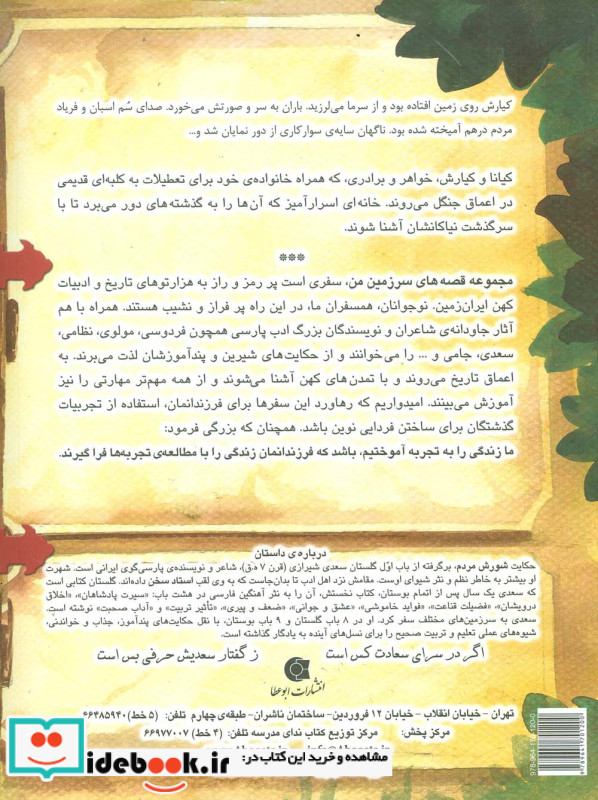 کیارش روی زمین افتاده بود و از سرما می‌لرزید. باران به سر و صورتش می‌خورد. صدای سُم اسبان و فریاد
مردم درهم آمیخته شده بود. ناگهان سایه‌ی سوارکاری از دور نمایان شد و...
کیانا و کیارش، خواهر و برادری، که همراه خانواده‌ی خود برای تعطیلات به کلبه‌ای قدیمی
در اعماق جنگل می‌روند. خانه‌ای اسرارآمیز که آن‌ها را به گذشته‌های دور می‌برد تا با
سرگذشت نیاکانشان آشنا شوند.
***
مجموعه قصه‌های سرزمین من، سفری است پر رمز و راز به هزارتوهای تاریخ و ادبیات
کهن ایران‌زمین، نوجوانان، همسفران ما، در این راه پر فراز و نشیب هستند. همراه با هم
آثار جاودانه‌ی شاعران و نویسندگان بزرگ ادب پارسی همچون فردوسی، مولوی، نظامی،
سعدی، جامی و ... را می‌خوانند و از حکایت‌های شیرین و پندآموزشان لذت می‌برند. به
اعماق تاریخ می‌روند و با تمدن‌های کهن آشنا می‌شوند و از همه مهم‌تر مهارتی را نیز
آموزش می‌بینند. امیدواریم که رهاورد این سفرها برای فرزندانمان، استفاده از تجربیات
گذشتگان برای ساختن فردایی نوین باشد. همچنان که بزرگی فرمود:
ما زندگی را به تجربه آموختیم، باشد که فرزندانمان زندگی را با مطالعه‌ی تجربه‌ها فرا گیرند.
درباره‌ی داستان
حکایت شورش مردم، برگرفته از باب اوّل گلستان سعدی شیرازی (قرن ۷ ه.ق)، شاعر و نویسنده‌ی پارسی‌گوی ایرانی است. شهرت
او بیشتر به خاطر نظم و نثر شیوای اوست. مقامش نزد اهل ادب تا بدان‌جاست که به وی لقب استاد سخن داده‌اند. گلستان کتابی است
که سعدی یک سال پس از اتمام بوستان، کتاب نخستش، آن را به نثر آهنگین فارسی در هشت باب: «سیرت پادشاهان»، «اخلاق
درویشان»، «فضیلت قناعت»، «فواید خاموشی»، «عشق و جوانی»، «ضعف و پیری»، «تأثیر تربیت» و «آداب صحبت» نوشته است.
سعدی به سرزمین‌های مختلف سفر کرد. او در ۸ باب گلستان و ۹ باب بوستان، با نقل حکایت‌های پندآموز، جذاب و خواندنی،
شیوه‌های عملی تعلیم و تربیت صحیح را برای نسل‌های آینده به یادگار گذاشته است.
اگر در سرای سعادت کس است ز گفتار سعدیش حرفی بس است
انتشارات ابوعطا
تهران - خیابان انقلاب - خیابان ۱۲ فروردین - ساختمان ناشران - طبقه‌ی چهارم تلفن: (۵ خط) ۶۶۴۸۵۹۴۰
مرکز پخش: مرکز توزیع کتاب ندای مدرسه تلفن: (۴ خط) ۶۶۹۷۷۰۰۷
مشاهده و خرید این کتاب در:
idebook.ir